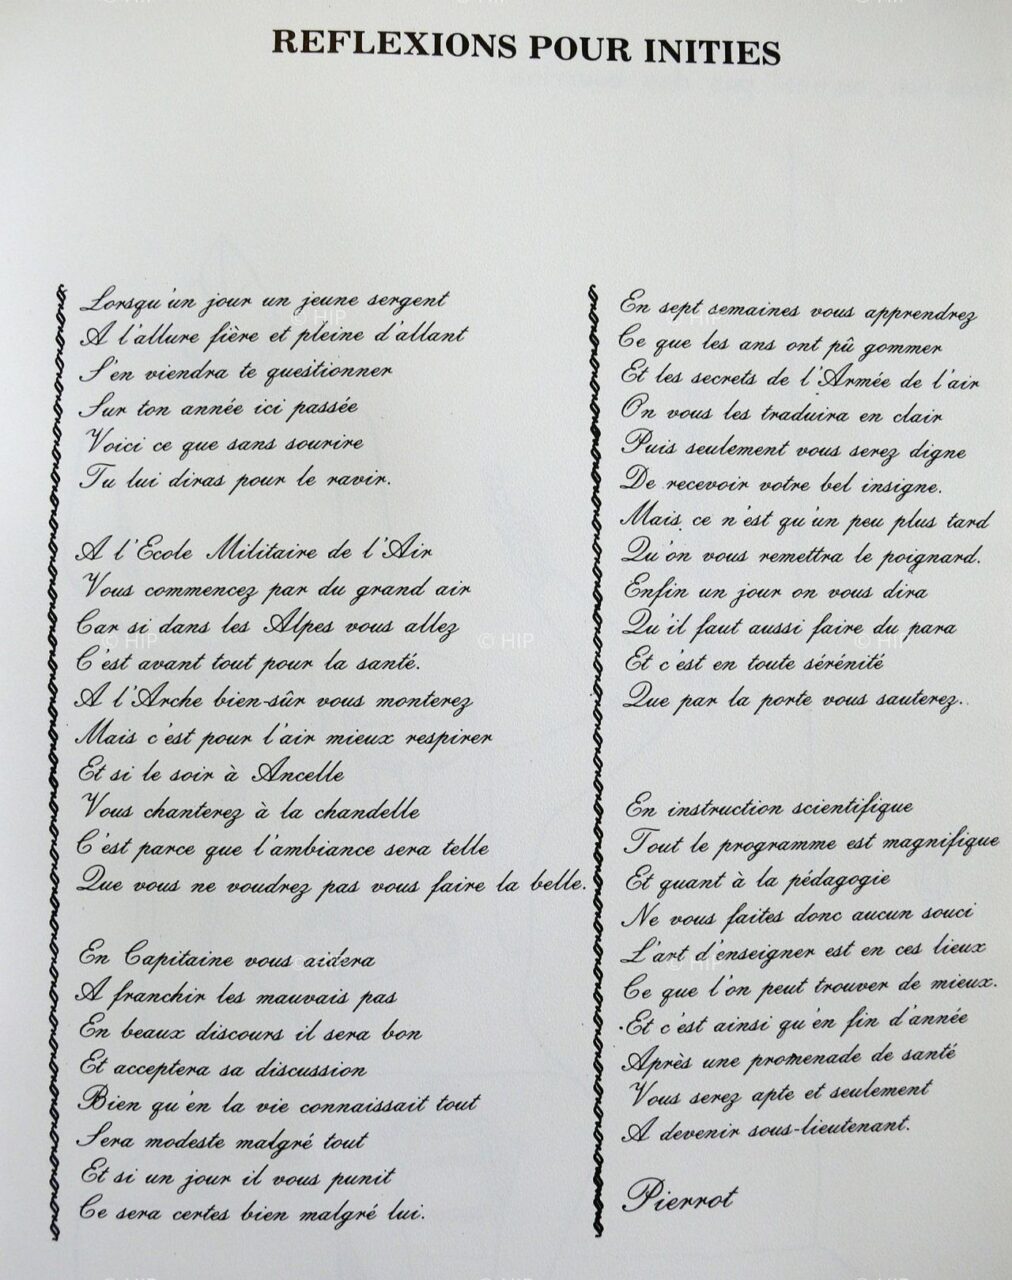 REFLEXIONS POUR INITIES
Lorsqu'un jour un jeune sergent
A l'allure fière et pleine d'allant
S'en viendra te questionner
Sur ton année ici passée
Voici ce que sans sourire
Tu lui diras pour le ravir.
A l'Ecole Militaire de l'Air
Vous commencez par du grand air
Car si dans les Alpes vous allez
C'est avant tout pour la santé.
A l'Arche bien-sûr vous monterez
Mais c'est pour l'air mieux respirer
Et si le soir à Ancelle
Vous chanterez à la chandelle
C'est parce que l'ambiance sera telle
Que vous ne voudrez pas vous faire la belle.
En Capitaine vous aidera
A franchir les mauvais pas
En beaux discours il sera bon
Et acceptera sa discussion
Bien qu'en la vie connaissait tout
Sera modeste malgré tout
Et si un jour il vous punit
Ce sera certes bien malgré lui.
En sept semaines vous apprendrez
Ce que les ans ont pû gommer
Et les secrets de l'Armée de l'air
On vous les traduira en clair
Puis seulement vous serez digne
De recevoir votre bel insigne.
Mais ce n'est qu'un peu plus tard
Qu'on vous remettra le poignard.
Enfin un jour on vous dira
Qu'il faut aussi faire du para
Et c'est en toute sérénité
Que par la porte vous sauterez.
En instruction scientifique
Tout le programme est magnifique
Et quant à la pédagogie
Ne vous faites donc aucun souci
L'art d'enseigner est en ces lieux
Ce que l'on peut trouver de mieux.
Et c'est ainsi qu'en fin d'année
Après une promenade de santé
Vous serez apte et seulement
A devenir sous-lieutenant.
Pierrot
© HIP